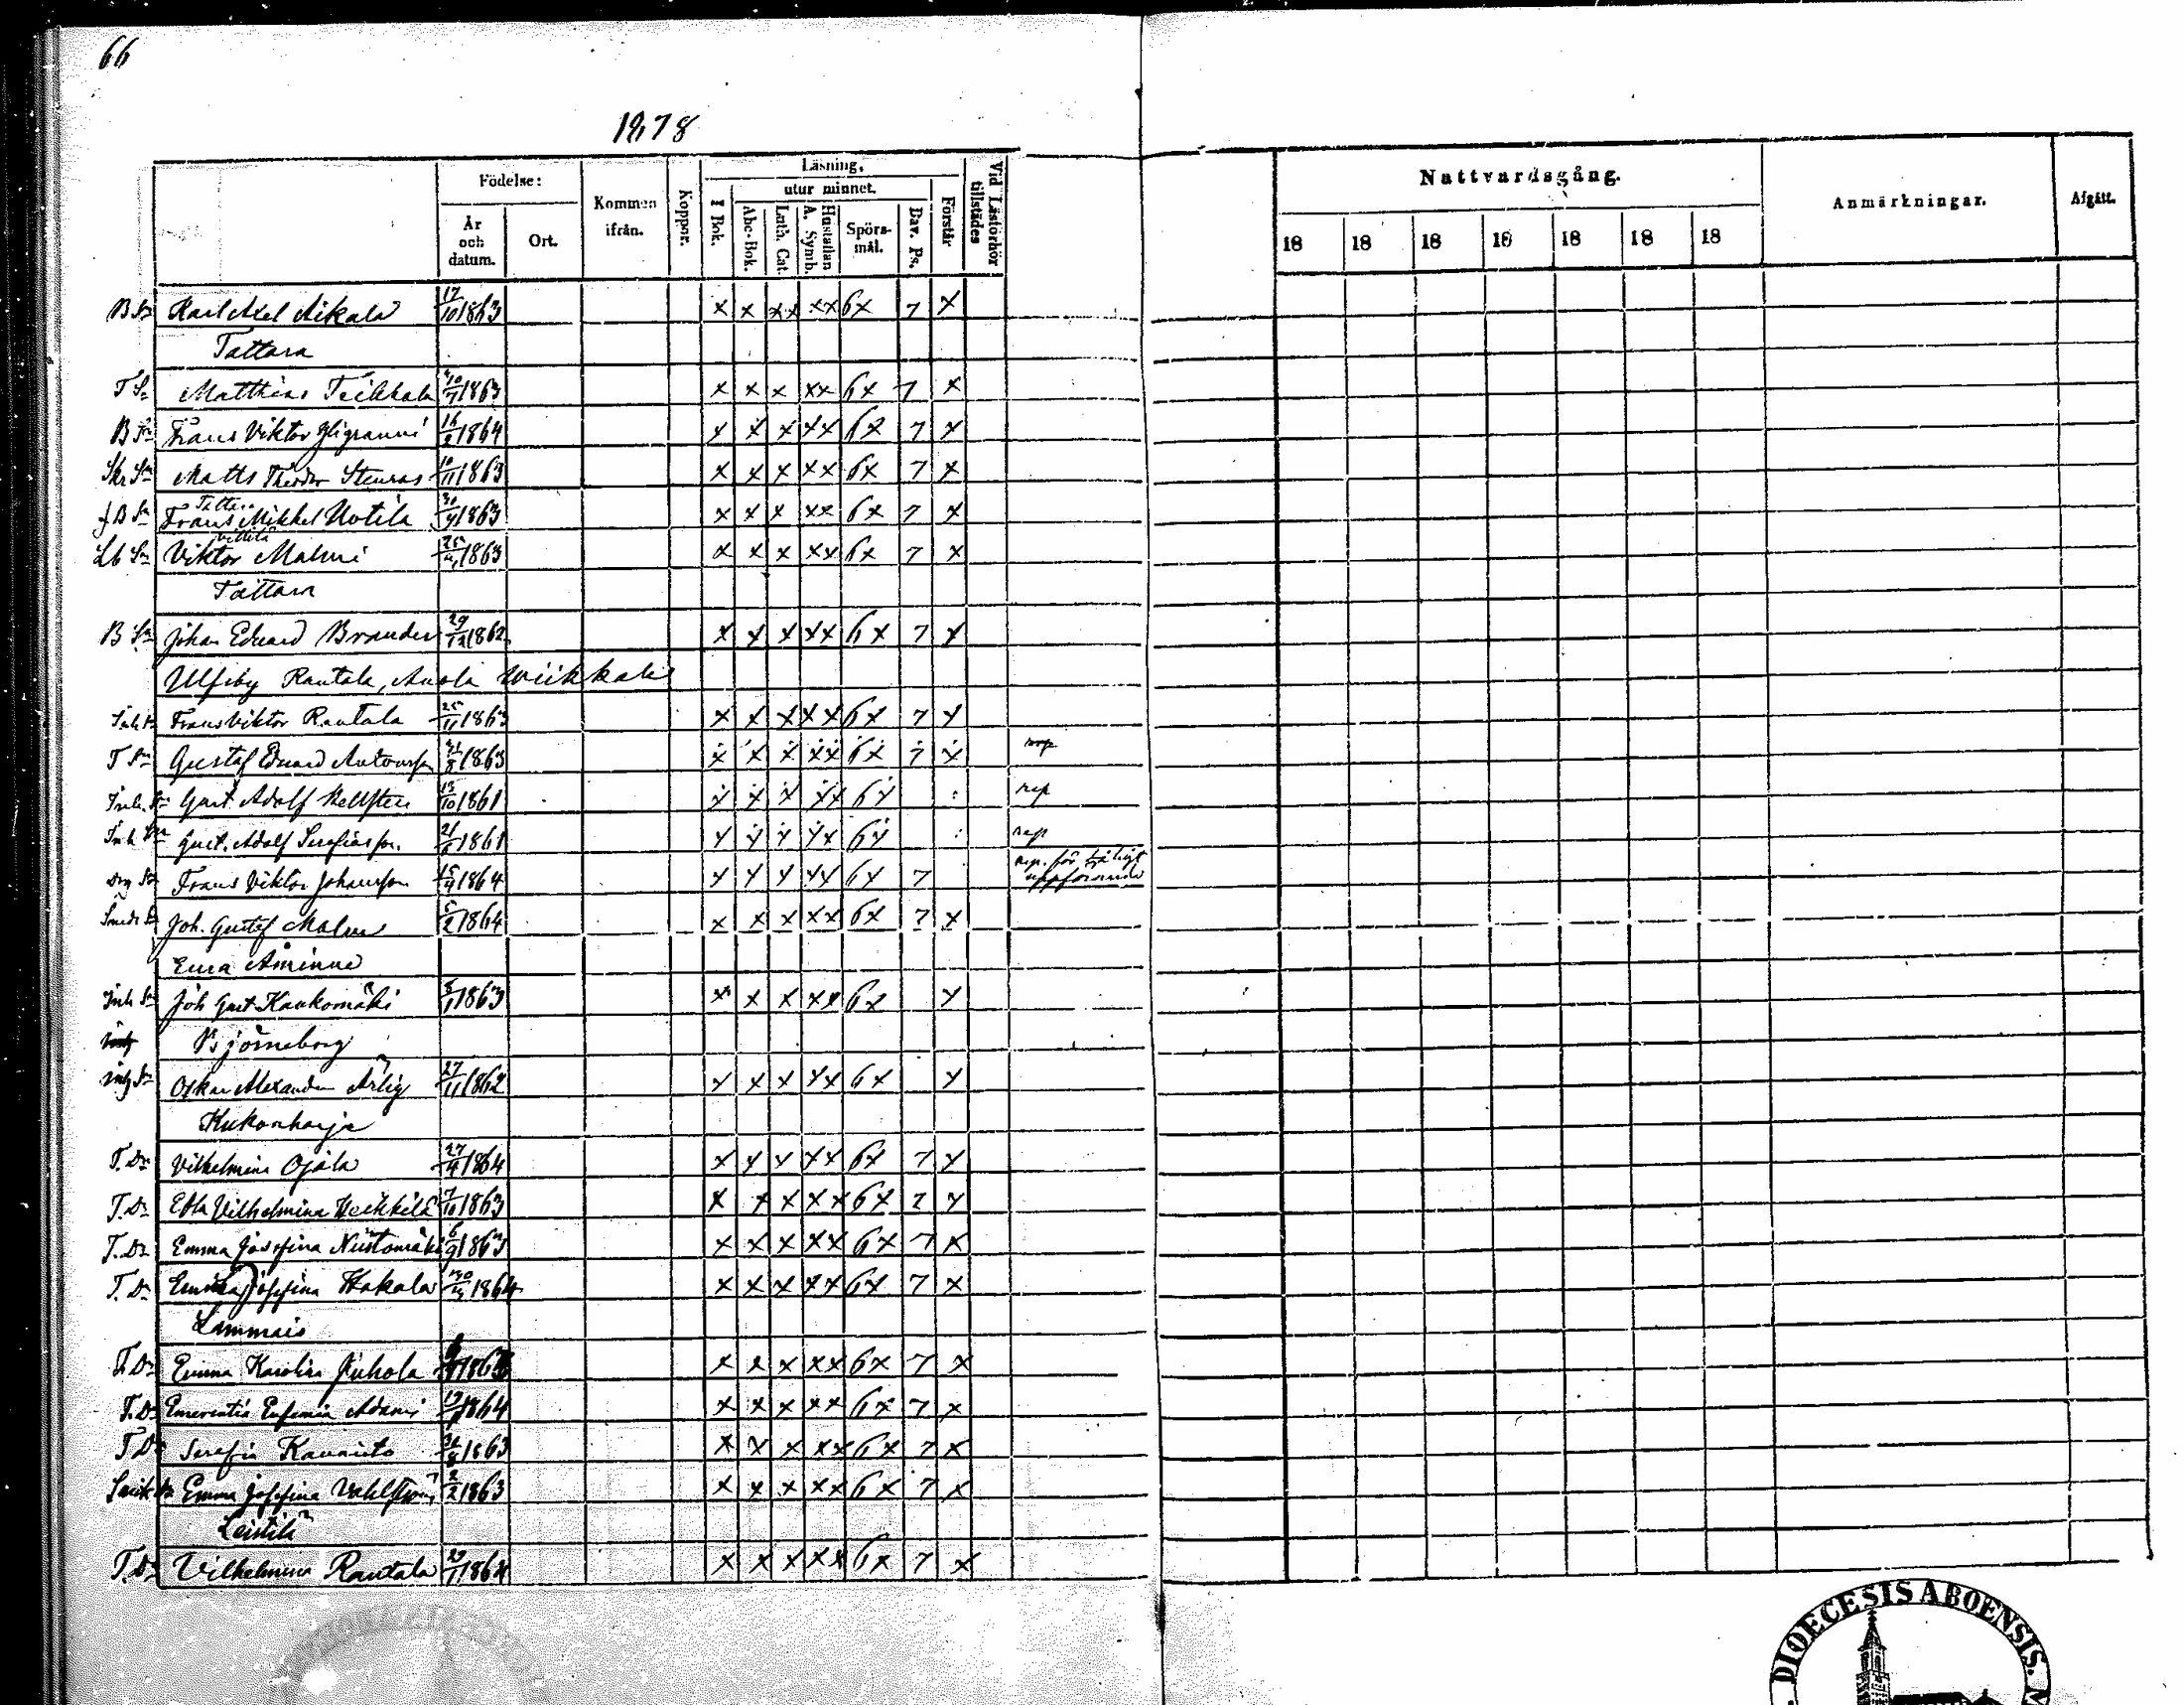 66
1878
Födelse:
År och datum.
Ort.
Kommen ifrån.
Koppor.
Läsning,
utur minnet.
I Bok.
Abc-Bok.
Luth. Cat.
Hustaflan A. Symb.
Spörs-mål.
Dav. Ps.
Förstår
Vid Läsförhör tillstädes
Nattvardsgång.
18 18 18 18 18 18 18
Anmärkningar.
Afgått.
B Sn Karl Axel Aikala 17/10 1863 x x xx xx 6x 7 x
Tattara
T Sn Matthias Teikkala 1863 x x x xx 6x 7 x
B Sn Frans Viktor Yligranni 16/2 1864 x x x xx 6x 7 x
Skr Sn Matts Theodor Stenroos 10/11 1863 x x x xx 6x 7 x
f B Sn Frans Mikkel Uotila 1863 x x x xx 6x 7 x
Vittila
Lb Sn Viktor Malmi 1863 x x x xx 6x 7 x
Tattara
B Sn Johan Eduard Brander 29/12 1862 x x x xx 6x 7 x
Ulfsby Rautala, Anola Wiikkala
Inh Frans Viktor Rautala 25/11 1863 x x x xx 6x 7 x
T Sn Gustaf Eduard Antonsson 1863 x x x xx 6x 7 x rep
Inh. Sn Gust. Adolf Hellsten 13/10 1861 x x x xx 6x rep
Inh Sn Gust. Adolf Serafiasson 21/6 1861 x x x xx 6x rep
Frans Viktor Johansson 1864 x x x xx 6x 7 rep. för uppförande
Smeds S Joh. Gustaf Malm 5/2 1864 x x x xx 6x 7 x
Eura Åminne
Inh Sn Joh Gust Kaukomäki 5/1 1863 x x x xx 6x x
Björneborg
Oskar Alexander Ärlig 27/11 1862 x x x xx 6x x
Kukonharja
T. Dr Vilhelmina Ojala 27/4 1864 x x x xx 6x 7 x
T. Dr Ebba Vilhelmina Heikkilä 7/10 1863 x x x xx 6x 7 x
T. Dr Emma Josefina Niistomäki 6/9 1863 x x x xx 6x 7 x
T. Dr Josefina Hakala 1864 x x x xx 6x 7 x
Lammais
T. Dr Emma Karolina Juhola x x x xx 6x 7 x
T. Dr Emerentia Eufemia Adami 1864 x x x xx 6x 7 x
T Dr Serafia Kaunisto 1863 x x x xx 6x 7 x
Emma Josefina Vahlström 2/2 1863 x x x xx 6x 7 x
Leistilä
T. Dr Vilhelmina Rautala 29/1 1864 x x x xx 6x 7 x
DIOECESIS ABOENSIS.